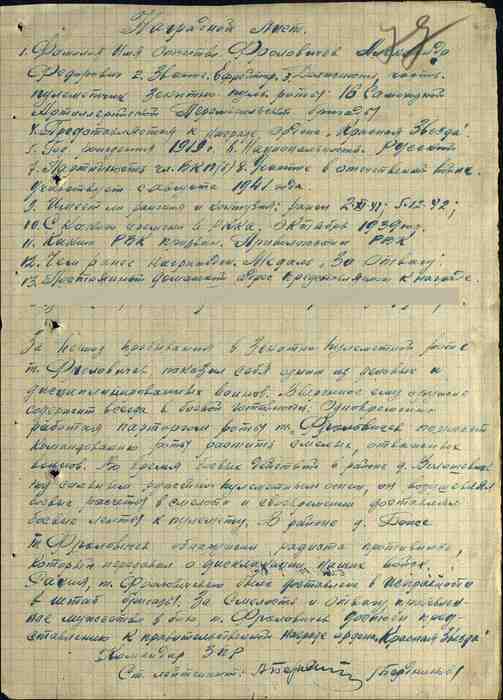 Наградной лист.
1. Фамилия Имя Отчество Фроловичев Александр
Федорович 2. Звание Ефрейтор 3. Должность, часть
пулеметчик зенитно пулем роты 16 Самоходной
Артиллерийской бригады
4. Представляется к награде орден „Красная Звезда"
5. Год рождения 1919 г. 6. Национальность Русский
7. Партийность чл. ВКП(б) 8. Участие в отечественной войне
участвует с августа 1941 года.
9. Имеет ли ранения и контузии: ранен
10. С какого времени в РККА. Октябрь 1939 год
11. Каким РВК призван. РВК
12. Чем ранее награжден. Медаль „За Отвагу"
13. Постоянный домашний адрес представляемого к награде.
За период пребывания в Зенитно пулеметной роте
т. Фроловичев показал себя одним из деловых и
дисциплинированных воинов. Вверенное ему оружие
содержит всегда в боевой готовности. Одновременно
работая парторгом роты т. Фроловичев помогает
командованию роты растить смелых, отважных
воинов. Во время боевых действий в районе д.
под сильным ружейно пулеметным огнем, он воодушевлял
боевые расчеты в смелости и своевременно доставлял
боевые ленты к пулемету. В районе д.
т. Фроловичев обнаружил радиста противника,
который передавал о дислокации наших войск.
Рация, т. Фроловичевым была доставлена в исправности
в штаб бригады. За смелость и отвагу, проявлен-
ное мужество в бою т. Фроловичев достоин пред-
ставлению к правительственной награде ордена „Красная Звезда"
Командир ЗПР
Ст. лейтенант: